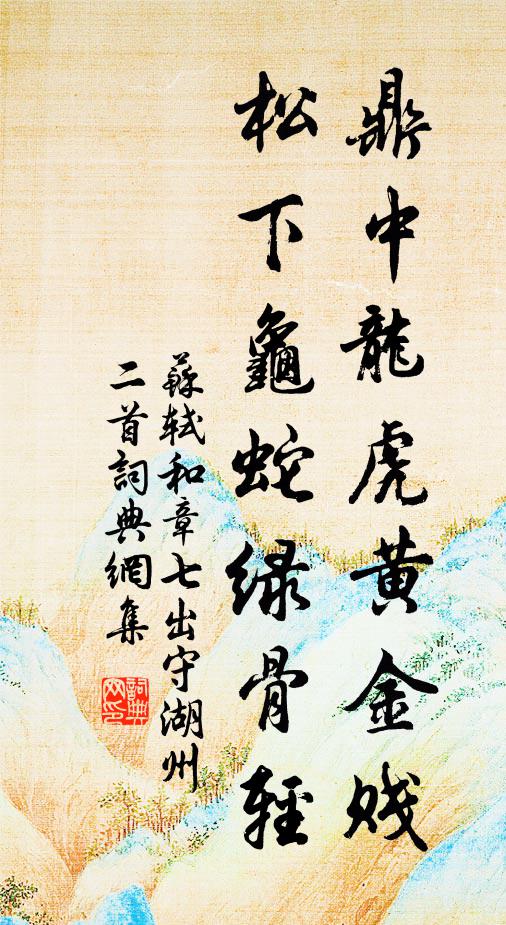 鼎中龍虎黄金贱
松下龜蛇绿骨輕
蘇轼和章七出守湖州
二首詞典網集
詞典
网印